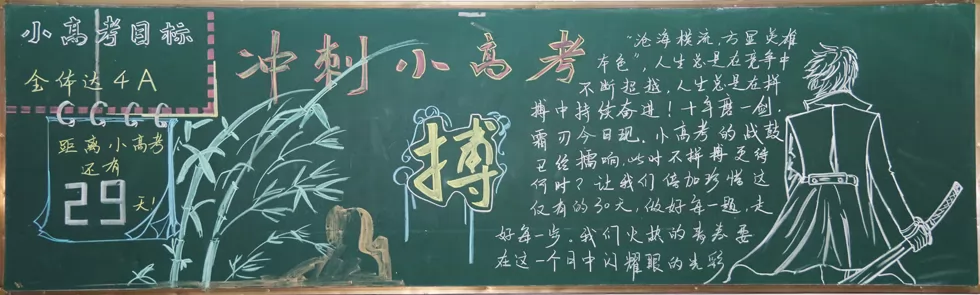 小高考目标
全体达4A
距离小高考
还有
29天!
冲刺小高考
搏
“沧海横流,方显英雄
本色”,人生总是在竞争中
不断超越,人生总是在拼
搏中持续奋进!十年磨一剑,
霜刃今日现。小高考的战鼓
已经擂响,此时不拼搏更待
何时?让我们倍加珍惜这
仅有的30天,做好每一题,走
好每一步。我们火热的青春要
在这一个月中闪耀眼的光彩